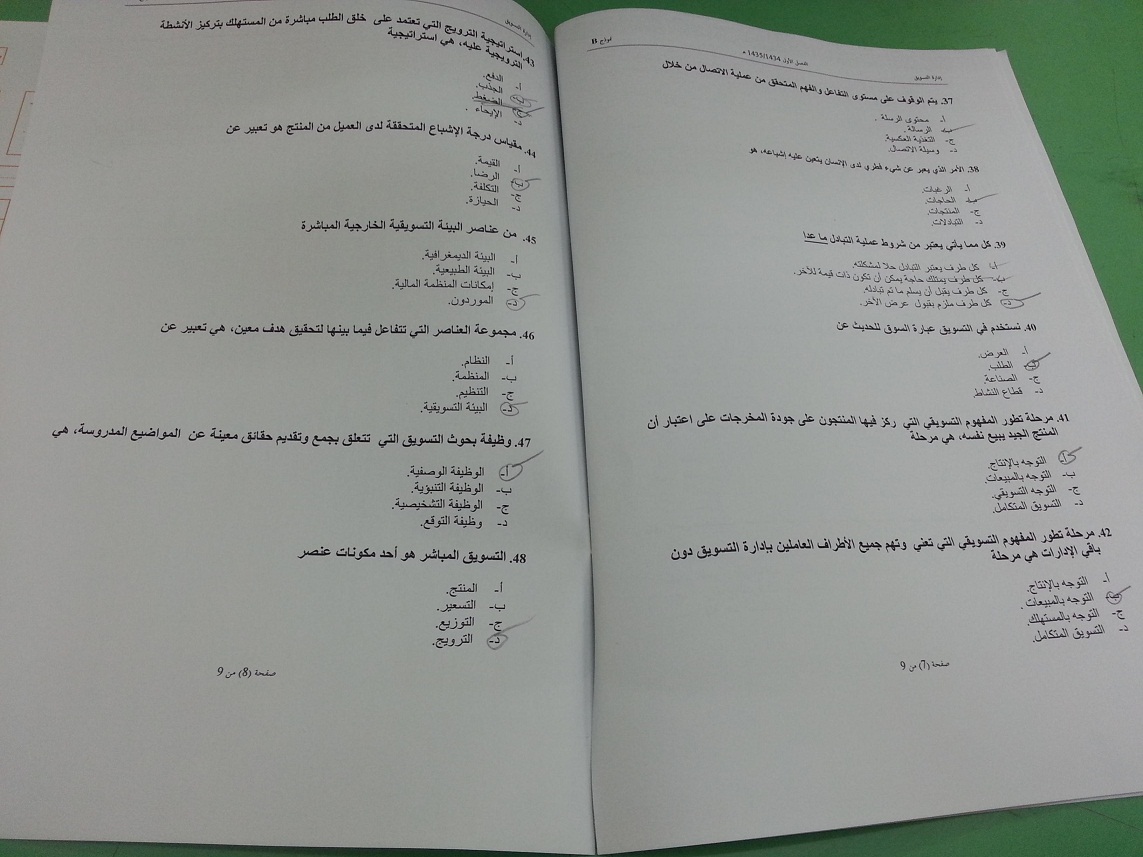 إدارة التسويق
الفصل الأول 1435/1434 هـ
نموذج B
37. يتم الوقوف على مستوى التفاعل والفهم المتحقق من عملية الاتصال من خلال
أ- محتوى الرسالة .
ب- الرسالة.
ج- التغذية العكسية.
د- وسيلة الاتصال.
38. الأمر الذي يعبر عن شيء فطري لدى الإنسان يتعين عليه إشباعه، هو
أ- الرغبات.
ب- الحاجات.
ج- المنتجات.
د- التبادلات.
39. كل مما يأتي يعتبر من شروط عملية التبادل ما عدا
أ- كل طرف يعتبر التبادل حلا لمشكلته.
ب- كل طرف يمتلك حاجة يمكن أن تكون ذات قيمة للآخر.
ج- كل طرف يقبل أن يسلم ما تم تبادله.
د- كل طرف ملزم بقبول عرض الآخر.
40. نستخدم في التسويق عبارة السوق للحديث عن
أ- العرض.
ب- الطلب.
ج- الصناعة.
د- قطاع النشاط.
41. مرحلة تطور المفهوم التسويقي التي ركز فيها المنتجون على جودة المخرجات على اعتبار أن
المنتج الجيد يبيع نفسه، هي مرحلة
أ- التوجه بالإنتاج.
ب- التوجه بالمبيعات.
ج- التوجه التسويقي.
د- التسويق المتكامل.
42. مرحلة تطور المفهوم التسويقي التي تعني وتهم جميع الأطراف العاملين بإدارة التسويق دون
باقي الإدارات هي مرحلة
أ- التوجه بالإنتاج.
ب- التوجه بالمبيعات.
ج- التوجه بالمستهلك.
د- التسويق المتكامل.
صفحة (7) من 9
إدارة التسويق
43. إستراتيجية الترويج التي تعتمد على خلق الطلب مباشرة من المستهلك بتركيز الأنشطة
الترويجية عليه، هي استراتيجية
أ- الدفع.
ب- الجذب.
ج- الضغط
د- الإيحاء .
44. مقياس درجة الإشباع المتحققة لدى العميل من المنتج هو تعبير عن
أ- القيمة.
ب- الرضا.
ج- التكلفة.
د- الحيازة.
45. من عناصر البيئة التسويقية الخارجية المباشرة
أ- البيئة الديمغرافية.
ب- البيئة الطبيعية.
ج- إمكانات المنظمة المالية.
د- الموردون.
46. مجموعة العناصر التي تتفاعل فيما بينها لتحقيق هدف معين، هي تعبير عن
أ- النظام.
ب- المنظمة.
ج- التنظيم.
د- البيئة التسويقية.
47. وظيفة بحوث التسويق التي تتعلق بجمع وتقديم حقائق معينة عن المواضيع المدروسة، هي
أ- الوظيفة الوصفية.
ب- الوظيفة التنبؤية.
ج- الوظيفة التشخيصية.
د- وظيفة التوقع.
48. التسويق المباشر هو أحد مكونات عنصر
أ- المنتج.
ب- التسعير.
ج- التوزيع.
د- الترويج.
صفحة (8) من 9